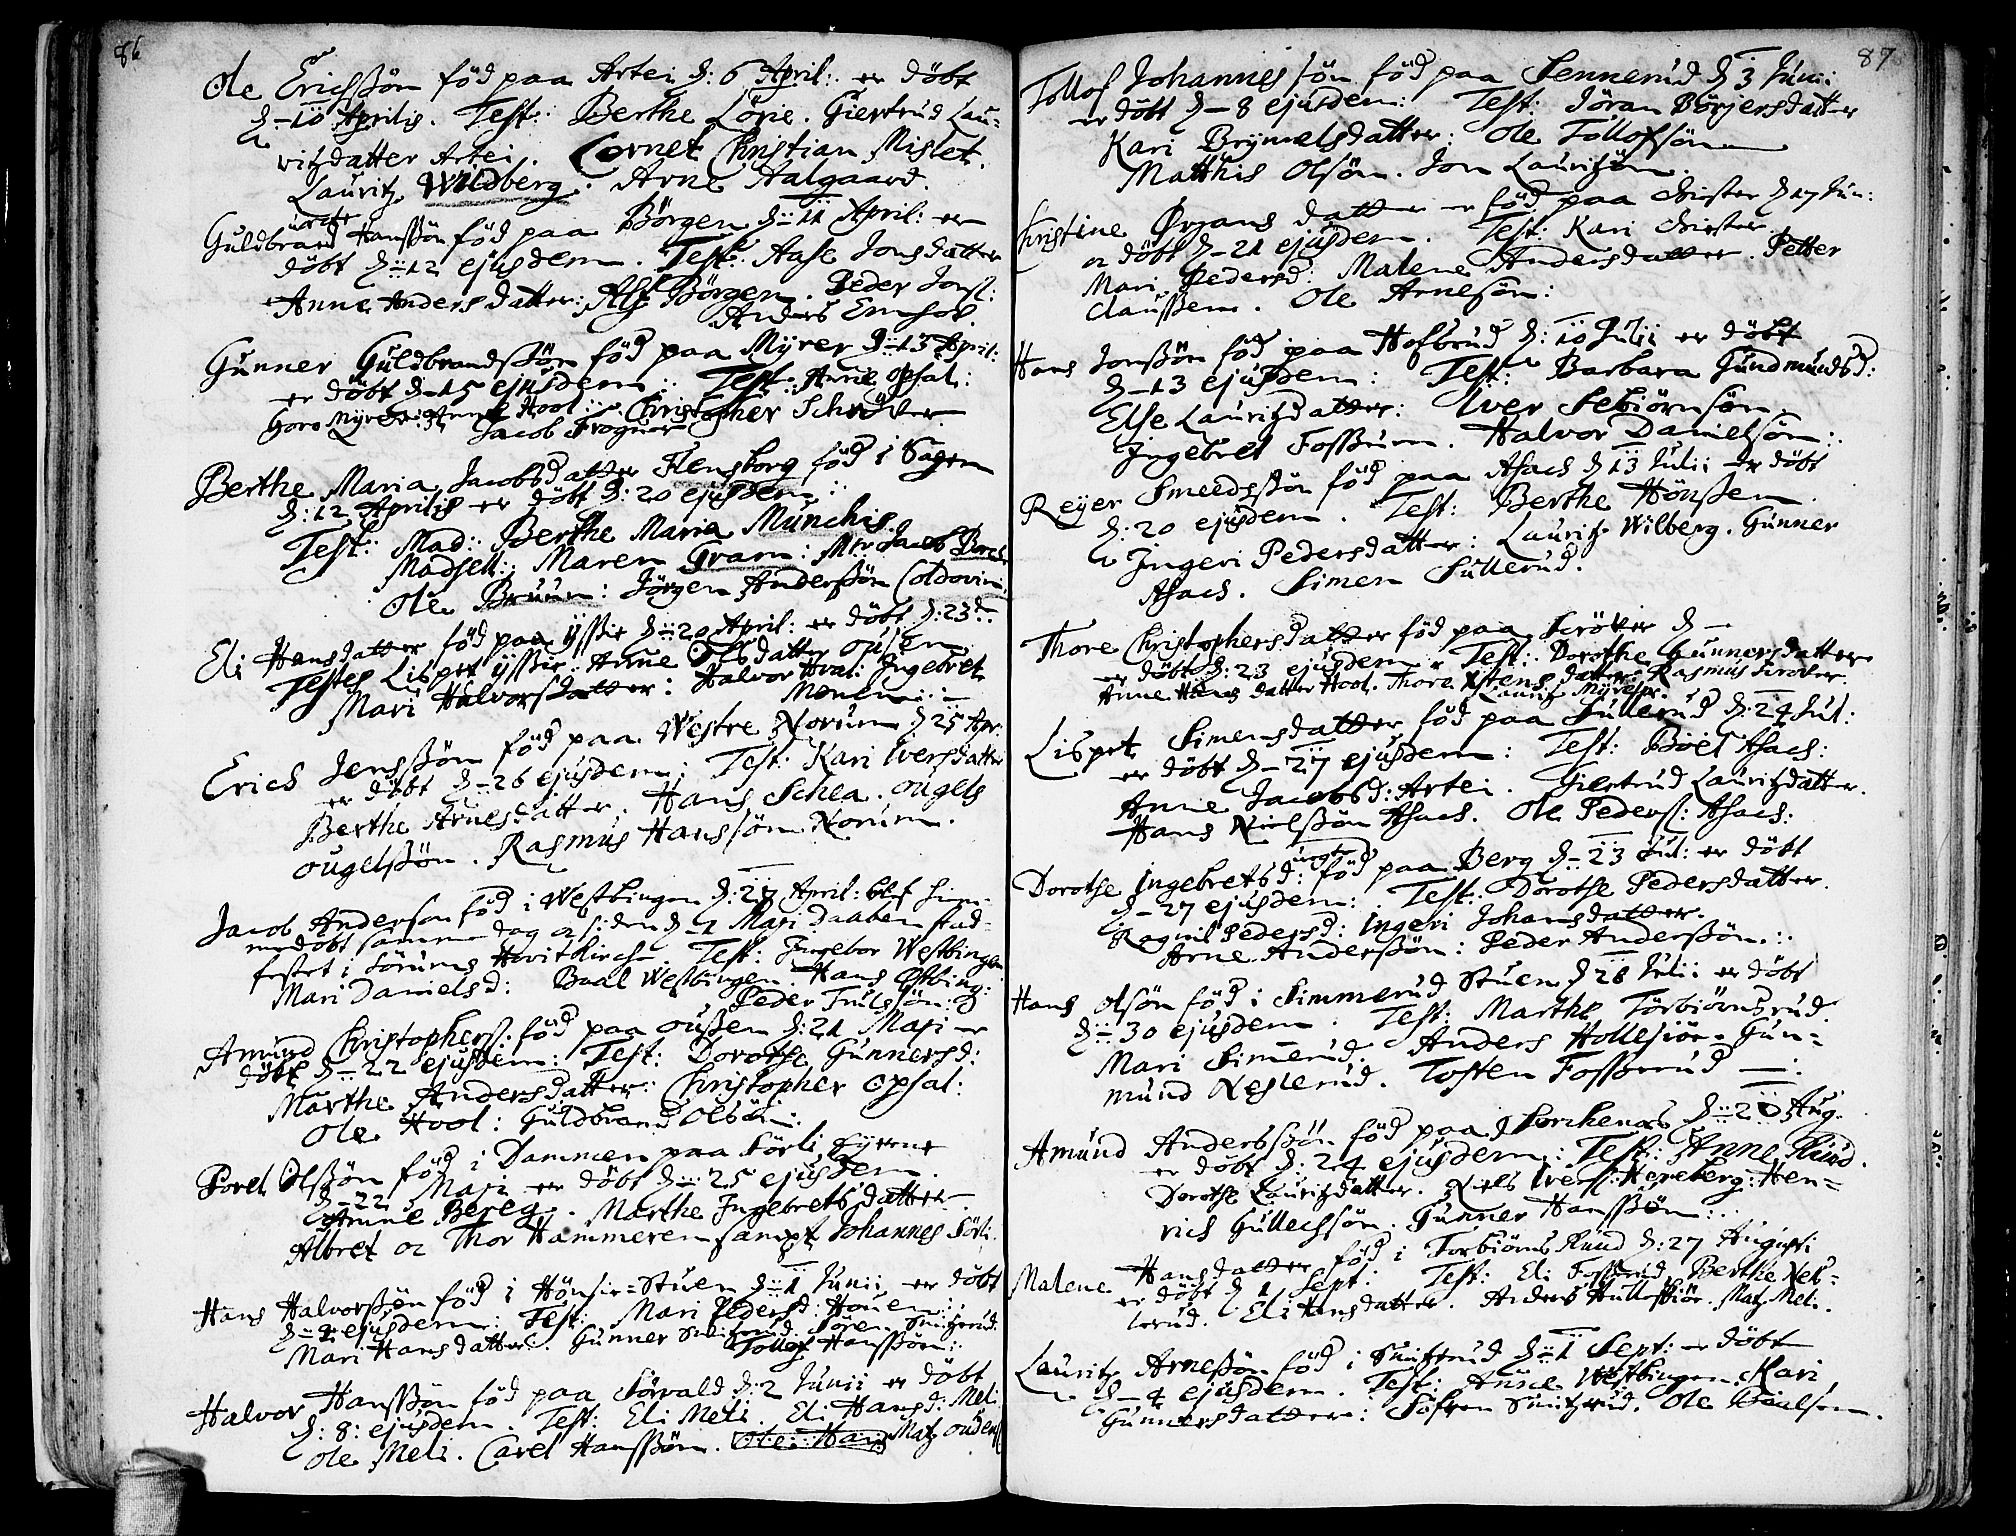 86
Ole Erichssön föd paa Artei d: 6 April: er döbt
d–10 Aprilis. Test: Berthe Lörie. Giertrud Lau-
ritzdatter Artei. Cornet Christian Mislet.
Lauritz Wildberg. Arne Aalgaard.
uægte
Guldbrand Hanssön föd paa Börgen d: 11 April: er
döbt d: 12 ejusdem. Test: Aase Jonsdatter
Anne Andersdatter: Alf Börgen. Peder Jons:
Anders
Gunner Guldbrandssön föd paa Myrer d: 13 April:
er döbt d–15 ejusdem: Test: Anne Opsal:
Goro Myrer: Hool: Christopher Schröder
Jacob Frogner
Berthe Maria Jacobsdatter Flensborg föd i Sagen
d: 12 Aprilis er döbt d: 20 ejusdem:
Test: Mad: Berthe Maria Munchis.
Madsell: Maren Gram: Mr: Jacob
Ole Bruun: Jörgen Anderssön Coldevin:
Eli Hansdatter föd paa ÿssie d: 20 April: er döbt d: 23d.
Testes Lispet ÿssie. Anne Olsdatter ousen
Mari Halvorsdatter: Halvor Hval: Ingebret
Monsen:
Erich Jenssön föd paa Westre Norum d 25 Apr:
er döbt d–26 ejusdem: Test: Kari Iversdatter
Berthe Arnesdatter. Hans Schea. ougels
ougelssön. Rasmus Hanssön Norum.
Jacob Anderssen föd i Westbingen d: 27 April: blef hiem-
medöbt samme dag oc siden d–1 Maji Daaben stad-
festet i Sörums Hovitkirche. Test: Ingebor Westbingen
Mari Danielsd: Baal Westbingen. Hans Østbing:
Peder Trulssön:
Amund Christophers: föd paa oussen d: 21 Maji er
döbt d–22 ejusdem: Test: Dorothe Gunnersd:
Marthe Andersdatter: Christopher Opsal:
Ole Hool: Guldbrand Olsön:
Povel Olssön föd i Dammen paa Sörli
d–22 Maji er döbt d: 25 ejusdem.
Anne Bereg. Marthe Ingebretsdatter
Albret oc Thor Hammeren sampt Johannes Sörli.
Hans Halvorssön föd i Hönsie-Stuen d: 1 Junii er döbt
d–4 ejusdem: Test: Mari Pedersd: Houen:
Mari Hansdatter. Gunner Smitzrud. Sören Smitzrud.
Tollof Hanssön:
Halvor Hanssön föd paa Sörvald d: 2 Junii er döbt
d: 8: ejusdem. Test: Eli Meli. Eli Hansd: Meli
Ole Meli. Carel Hanssön. Ole Hans Matz oudens
87
Tollof Johannessön föd paa Sennerud d 3 Junii
er döbt d–8 ejusdem: Test: Jöran Börjersdatter
Kari Brynnelsdatter: Ole Tollofsön
Matthis Olsön. Jon Lauritzön.
Christine Ørjansdatter er föd paa Chister d 17 Jun:
oc döbt d–21 ejusdem. Test: Kari Chister
Mari Pedersd: Malene Andersdatter. Petter
Claussen. Ole Arnesön:
Hans Jonssön föd paa Hofbrud d: 10 Julii er döbt
d–13 ejusdem: Test: Barbara Gundmundsd:
Else Lauritzdatter: Iver Sebiörnsön.
Ingebret Fossum. Halvor Danielsön:
Reyer Smeedssön föd paa Asach d 13 Julii er döbt
d: 20 ejusdem. Test: Berthe Hönssen
Ingeri Pedersdatter: Lauritz Wilberg. Gunner
Asach. Simen Sullerud.
Thore Christophersdatter föd paa Scröver d –
er döbt d: 23 ejusdem. Test: Dorothe Gunnersdatter
Anne Hansdatter Hool. Thore datter. Rasmus Scröver.
Lauritz
Lispet Simensdatter föd paa Sullerud d: 24 Jul:
er döbt d–27 ejusdem: Test: Boel Asach:
Anne Jacobsd: Artei. Giertrud Lauritzdatter.
Hans Nielssön Asach. Ole Peders: Asach:
uægte
Dorothe Ingebretsd: föd paa Berg d–23 Jul: er döbt
d–27 ejusdem: Test: Dorothe Pedersdatter.
Ragnil Pedersd: Ingeri Johansdatter.
Arne Anderssön: Peder Anderssön:
Hans Olsön föd i Simmerud Stuen d 28 Julii er döbt
d: 30 ejusdem. Test: Marthe Törbiörnsrud.
Mari Simerud. Anders Hollesiöe. Gun-
mund Neslerud. Tosten Fossorrud —
Amund Anderssön föd paa d: 20 Aug.
er döbt d: 24 ejusdem: Test: Anne Ruud.
Dorothe Lauritzdatter. Niels Ivers: Hereberg: Hen-
rich Gullechsön. Gunner Hanssön:
Malene Hansdatter föd i Torbiörns Ruud d: 27 Augusti
er döbt d 1 Sept: Test: Eli Fosserud Berthe Nes-
lerud. Eli Hansdatter. Anders Hullessiöe. Matz Meli.
Lauritz Arnessön föd i Smitzrud d: 1 Sept: er döbt
d–4 ejusdem. Test: Anne Westbingen. Kari
Gunnersdatter: Söfren Smitzrud. Ole Poulsen.